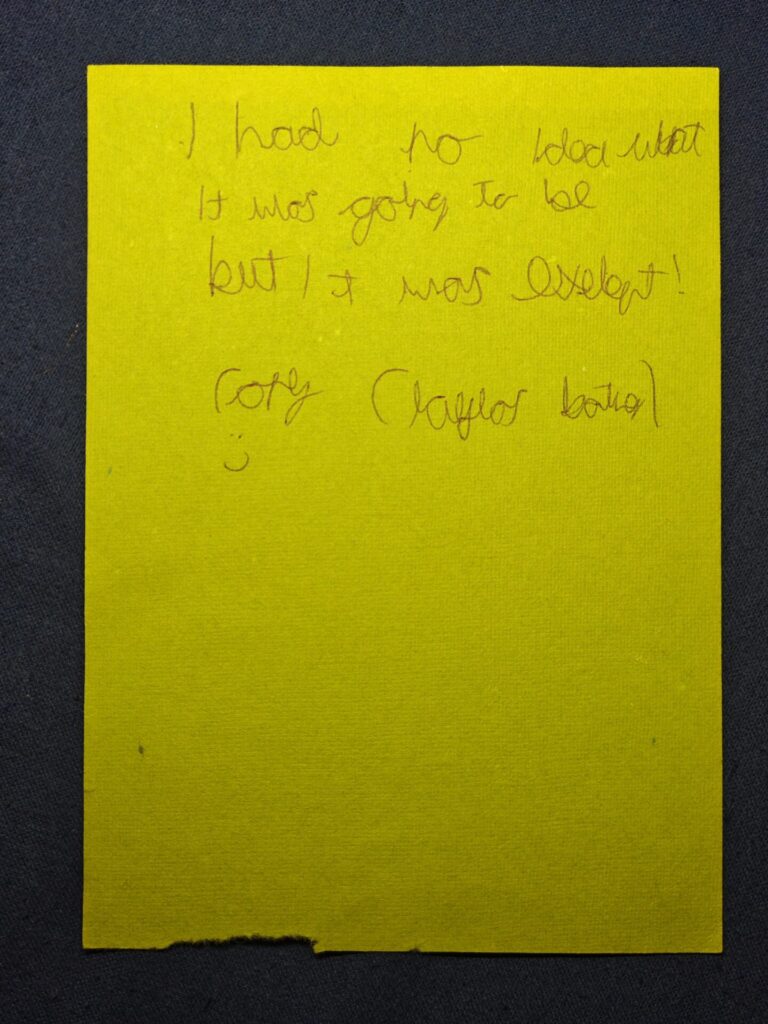 I had no idea what
it was going to be
but it was exelept!
Rory (Taylor
:)